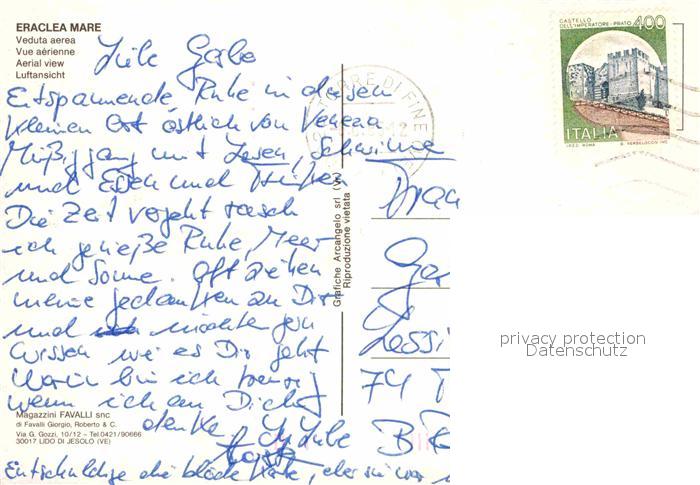 ERACLEA MARE
Veduta aerea
Vue aérienne
Aerial view
Luftansicht
CASTELLO
DELL'IMPERATORE - PRATO 400
ITALIA
I.P.Z.S. ROMA
TORRE DI FINE
Liebe Gabo
Entspannende Ruhe in diesem
kleinen Ort östlich von Venezia
Müßiggang mit Lesen, Schwimm
und Essen und Trinken
Die Zeit vergeht rasch
ich genieße Ruhe, Meer
und Sonne. Oft ziehen
meine Gedanken zu Dir
und möchte gern
wissen wie es Dir geht
wenn ich an Dich
denke. Ich
Entschuldige die blöde Karte, aber sie war
Frau
74
Grafiche Arcangelo srl (VE)
Riproduzione vietata
Magazzini FAVALLI snc
di Favalli Giorgio, Roberto & C.
Via G. Gozzi, 10/12 - Tel. 0421/90666
30017 LIDO DI JESOLO (VE)
privacy protection
Datenschutz